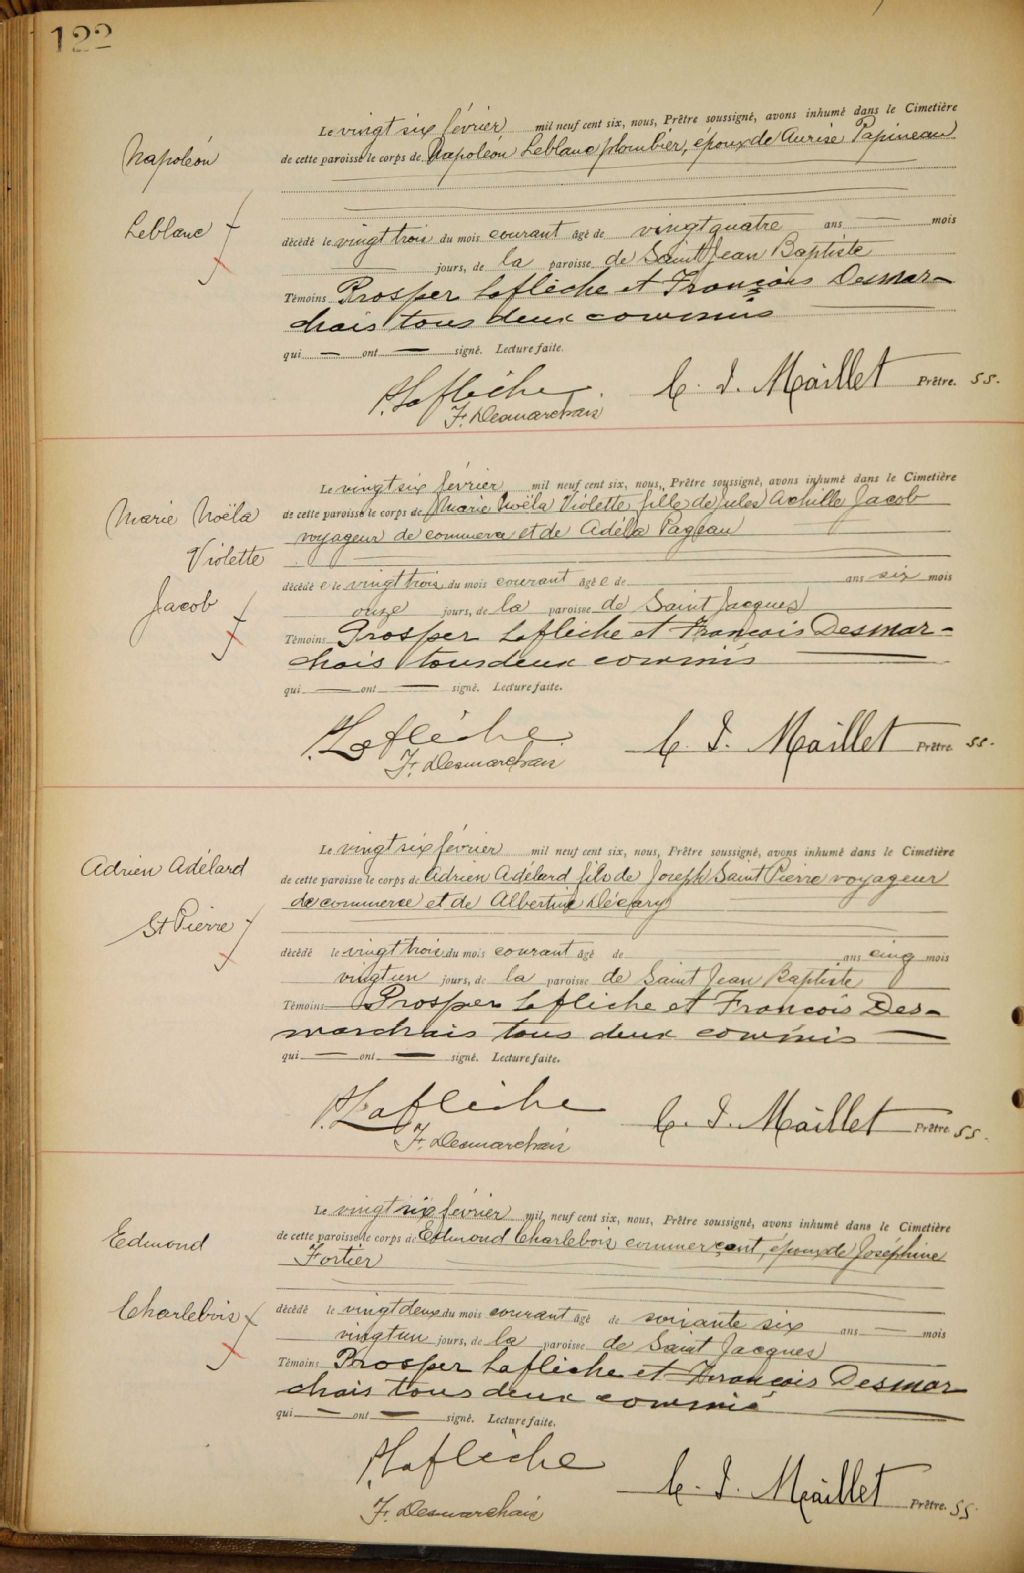 122
Le vingt six février mil neuf cent six, nous, Prêtre soussigné, avons inhumé dans le Cimetière
Napoléon
de cette paroisse le corps de Napoléon Leblanc plombier, époux de Aurise Papineau
Leblanc
décédé le vingt trois du mois courant âgé de vingt quatre ans, — mois
— jours, de la paroisse de Saint Jean Baptiste
Témoins Prosper Laflèche et François Desmar-
chais tous deux commis
qui — ont — signé. Lecture faite.
P. Laflèche C. J. Maillet Prêtre. SS.
F. Desmarchais
Le vingt six février mil neuf cent six, nous, Prêtre soussigné, avons inhumé dans le Cimetière
Marie Noëla
de cette paroisse le corps de Marie Noëla Violette fille de Jules Achille Jacob
voyageur de commerce et de Adélla Pageau
Violette
décédé e le vingt trois du mois courant âgé e de — ans six mois
Jacob
onze jours, de la paroisse de Saint Jacques
Témoins Prosper Laflèche et François Desmar-
chais tous deux commis
qui — ont — signé. Lecture faite.
P. Laflèche C. J. Maillet Prêtre SS.
F. Desmarchais
Le vingt six février mil neuf cent six, nous, Prêtre soussigné, avons inhumé dans le Cimetière
Adrien Adélard
de cette paroisse le corps de Adrien Adélard fils de Joseph Saint Pierre voyageur
de commerce et de Albertine Décary
St Pierre
décédé le vingt trois du mois courant âgé de — ans cinq mois
vingt un jours, de la paroisse de Saint Jean Baptiste
Témoins Prosper Laflèche et François Des-
marchais tous deux commis —
qui — ont — signé. Lecture faite.
P. Laflèche C. J. Maillet Prêtre SS.
F. Desmarchais
Le vingt six février mil neuf cent six, nous, Prêtre soussigné, avons inhumé dans le Cimetière
Edmond
de cette paroisse le corps de Edmond Charlebois commerçant, époux de Joséphine
Fortier
Charlebois
décédé le vingt deux du mois courant âgé de soixante six ans — mois
vingt un jours, de la paroisse de Saint Jacques
Témoins Prosper Laflèche et François Desmar
chais tous deux commis
qui — ont — signé. Lecture faite.
P. Laflèche C. J. Maillet Prêtre. SS.
F. Desmarchais